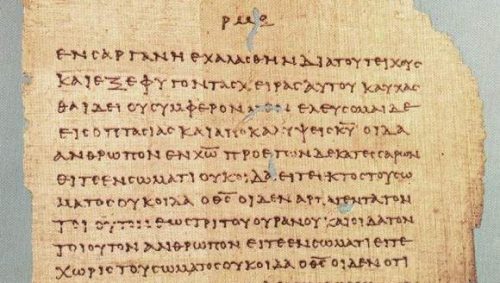 ΕΝϹΑΡΓΑΝΗ ΕΧΑΛΑϹΘΗΝΔΙΑΤΟΥΤΕΙΧΟΥϹ
ΚΑΙΕΞΕΦΥΓΟΝΤΑϹΧΕΙΡΑϹΑΥΤΟΥ ΚΑΥΧΑϹ
ΘΑΙΔΕΙΟΥϹΥΜΦΕΡΟΝ ΕΛΕΥϹΟΜΑΙΔΕ
ΕΙϹΟΠΤΑϹΙΑϹΚΑΙΑΠΟΚΑΛΥΨΕΙϹΚ̅Υ̅ ΟΙΔΑ
ΑΝΘΡΩΠΟΝΕΝΧ̅Ω̅ ΠΡΟΕΤΩΝΔΕΚΑΤΕϹϹΑΡΩΝ
ΕΙΤΕΕΝϹΩΜΑΤΙΟΥΚΟΙΔΑΕΙΤΕΕΚΤΟϹΤΟΥϹΩ
ΜΑΤΟϹΟΥΚΟΙΔΑ ΟΘ̅Ϲ̅ΟΙΔΕΝΑΡΠΑΓΕΝΤΑΤΟΝ
ΤΟΙΟΥΤΟΝΕΩϹΤΡΙΤΟΥΟΥΡΑΝΟΥΚΑΙΟΙΔΑΤΟΝ
ΤΟΙΟΥΤΟΝΑΝΘΡΩΠΟΝΕΙΤΕΕΝϹΩΜΑΤΙΕΙΤΕ
ΧΩΡΙϹΤΟΥϹΩΜΑΤΟϹΟΥΚΟΙΔΑ ΟΘ̅Ϲ̅ΟΙΔΕΝΟΤΙ